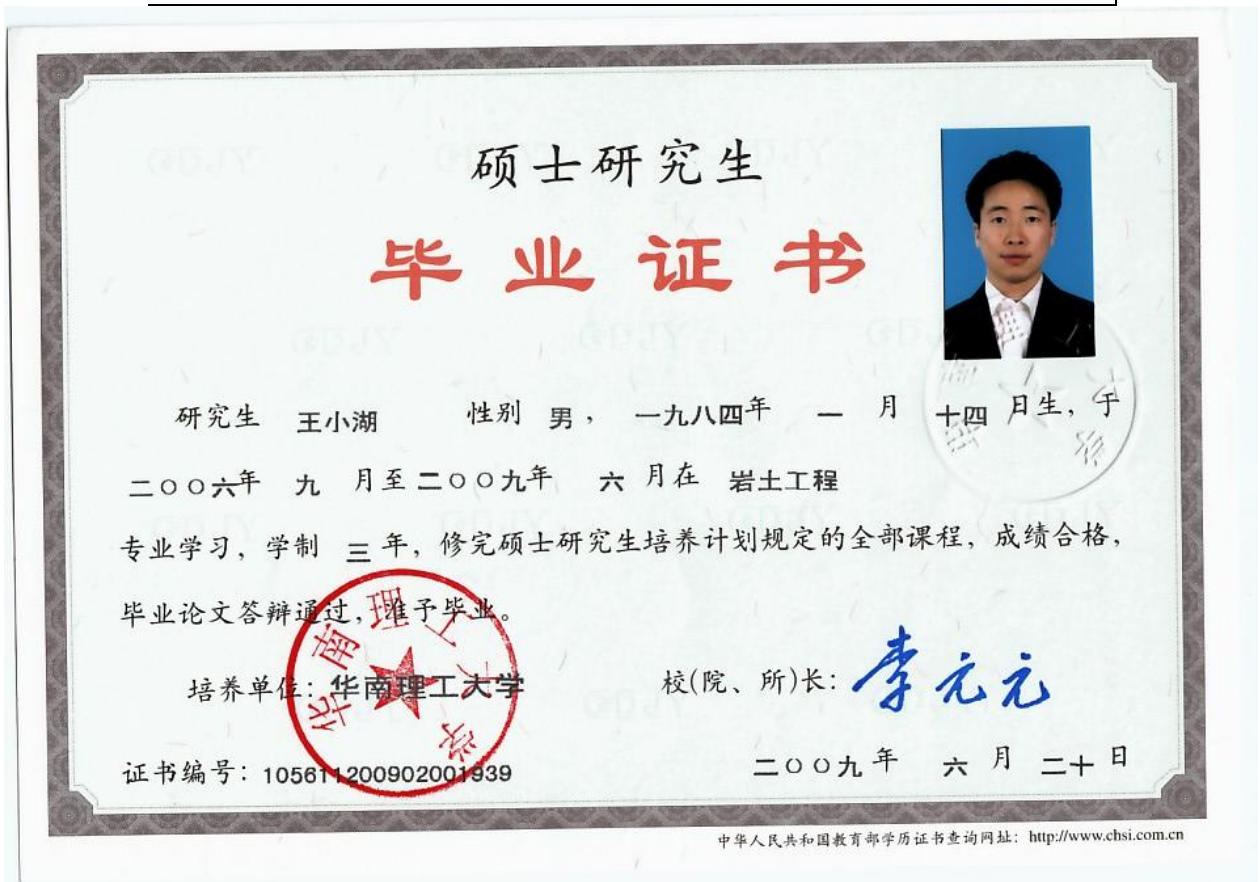 硕士研究生
毕业证书
研究生 王小湖 性别 男， 一九八四年 一 月 十四 日生，于
二〇〇六年 九 月至二〇〇九年 六 月在 岩土工程
专业学习，学制 三 年，修完硕士研究生培养计划规定的全部课程，成绩合格，
毕业论文答辩通过，准予毕业。
培养单位：华南理工大学
校(院、所)长：李元元
华南理工大学
证书编号：105611200902001939
二〇〇九年 六 月 二十 日
中华人民共和国教育部学历证书查询网址：http://www.chsi.com.cn